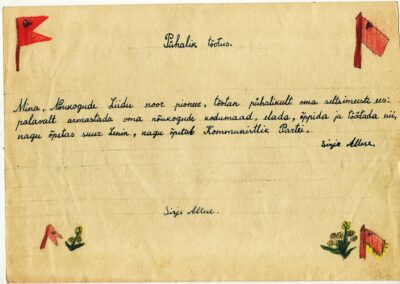 Pühalik tõotus.
Mina, Nõukogude Liidu noor pioneer, tõotan pühalikult oma seltsimeeste ees:
palavalt armastada oma nõukogude kodumaad, elada, õppida ja töötada nii,
nagu õpetas suur Lenin, nagu õpetab Kommunistlik Partei.
Sirje Allere.
Sirje Allere.